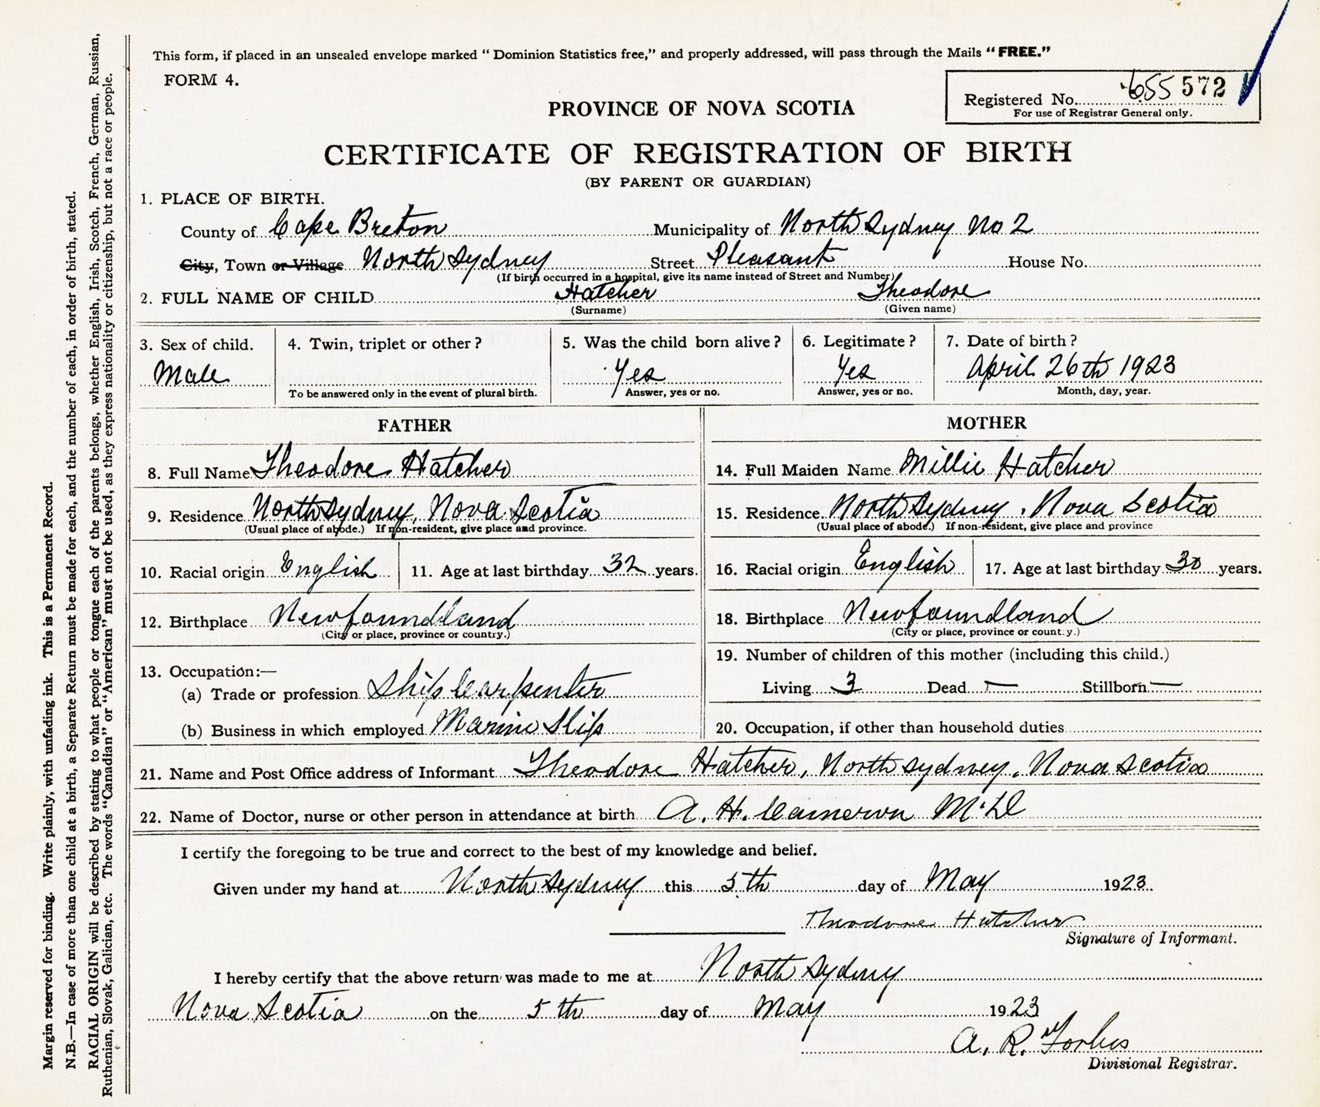 This form, if placed in an unsealed envelope marked "Dominion Statistics free," and properly addressed, will pass through the Mails "FREE."
FORM 4.
Registered No. 655 572
For use of Registrar General only.
PROVINCE OF NOVA SCOTIA
CERTIFICATE OF REGISTRATION OF BIRTH
(BY PARENT OR GUARDIAN)
1. PLACE OF BIRTH.
County of Cape Breton Municipality of North Sydney No 2
City, Town or Village North Sydney Street Pleasant House No.
(If birth occurred in a hospital, give its name instead of Street and Number)
2. FULL NAME OF CHILD Hatcher Theodore
(Surname) (Given name)
3. Sex of child. 4. Twin, triplet or other? 5. Was the child born alive? 6. Legitimate? 7. Date of birth?
Male Yes Yes April 26th 1923
To be answered only in the event of plural birth. Answer, yes or no. Answer, yes or no. Month, day, year.
FATHER
8. Full Name Theodore Hatcher
9. Residence North Sydney, Nova Scotia
(Usual place of abode.) If non-resident, give place and province.
10. Racial origin English 11. Age at last birthday 32 years.
12. Birthplace Newfoundland
(City or place, province or country.)
13. Occupation:—
(a) Trade or profession Ship Carpenter
(b) Business in which employed Marine Slip
MOTHER
14. Full Maiden Name Millie Hatcher
15. Residence North Sydney, Nova Scotia
(Usual place of abode.) If non-resident, give place and province
16. Racial origin English 17. Age at last birthday 30 years.
18. Birthplace Newfoundland
(City or place, province or country.)
19. Number of children of this mother (including this child.)
Living 3 Dead — Stillborn —
20. Occupation, if other than household duties
21. Name and Post Office address of Informant Theodore Hatcher, North Sydney, Nova Scotia
22. Name of Doctor, nurse or other person in attendance at birth A. H. Cameron M.D
I certify the foregoing to be true and correct to the best of my knowledge and belief.
Given under my hand at North Sydney this 5th day of May 1923.
Theodore Hatcher
Signature of Informant.
I hereby certify that the above return was made to me at North Sydney
Nova Scotia on the 5th day of May 1923
A. R. Forbes
Divisional Registrar.
Margin reserved for binding. Write plainly, with unfading ink. This is a Permanent Record.
N.B.—In case of more than one child at a birth, a Separate Return must be made for each, and the number of each, in order of birth, stated.
RACIAL ORIGIN will be described by stating to what people or tongue each of the parents belongs, whether English, Irish, Scotch, French, German, Russian,
Ruthenian, Slovak, Galician, etc. The words "Canadian" or "American" must not be used, as they express nationality or citizenship, but not a race or people.